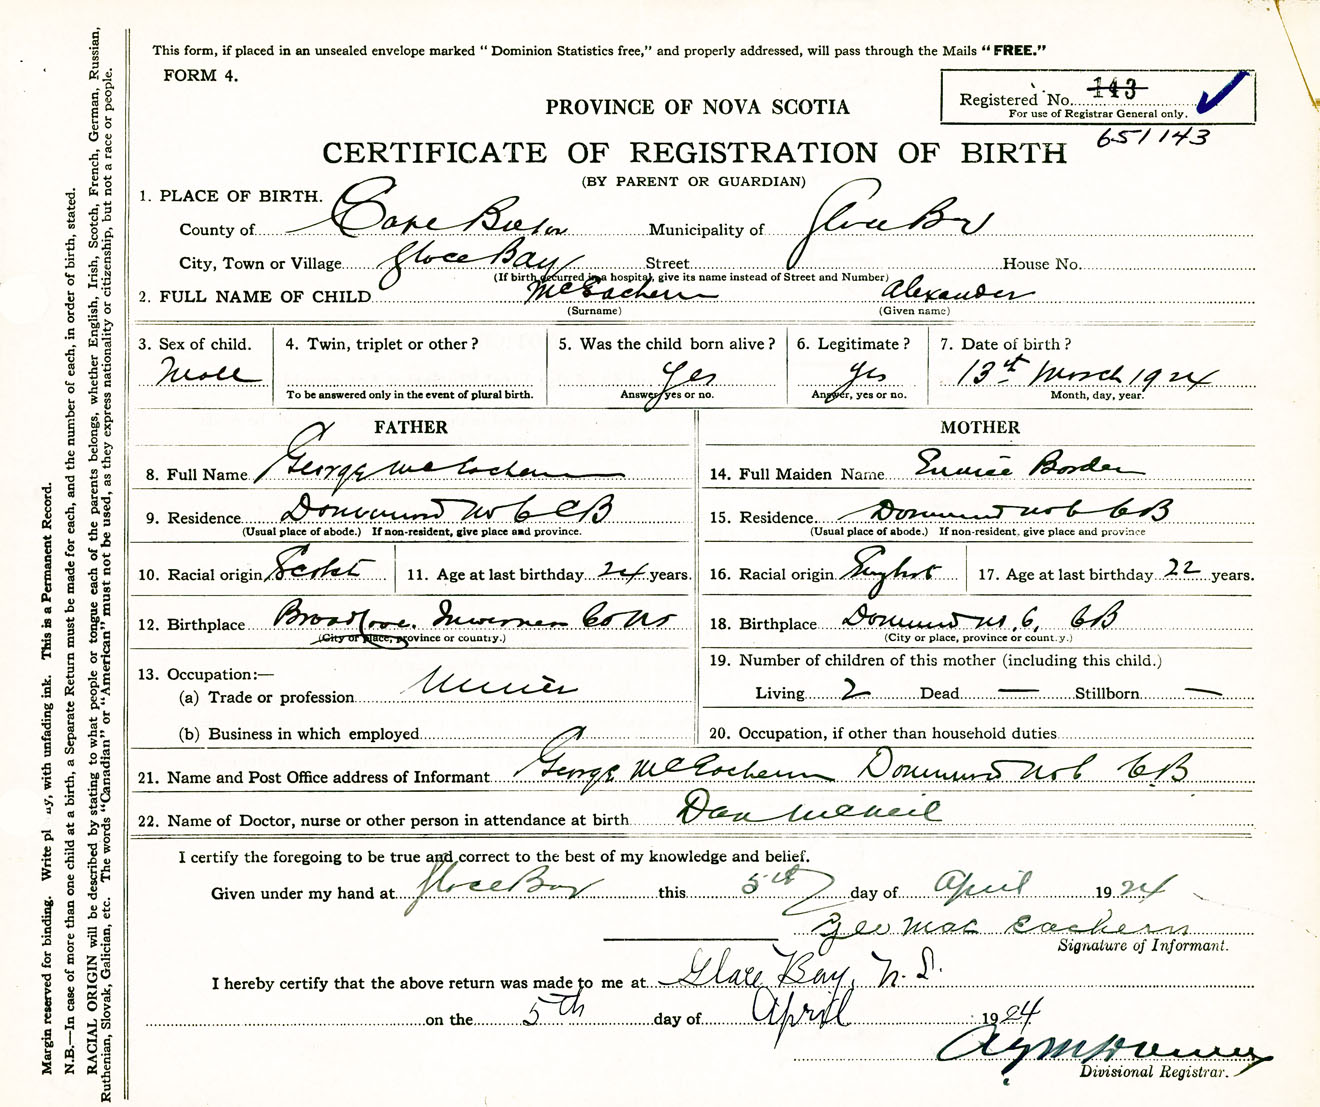 This form, if placed in an unsealed envelope marked “ Dominion Statistics free,” and properly addressed, will pass through the Mails “ FREE.”
FORM 4.
Registered No. 143
For use of Registrar General only.
651143
PROVINCE OF NOVA SCOTIA
CERTIFICATE OF REGISTRATION OF BIRTH
(BY PARENT OR GUARDIAN)
1. PLACE OF BIRTH.
County of Cape Breton Municipality of Glace Bay
City, Town or Village Glace Bay Street House No.
(If birth occurred in a hospital, give its name instead of Street and Number)
2. FULL NAME OF CHILD McEachern Alexander
(Surname) (Given name)
3. Sex of child. Male
4. Twin, triplet or other ?
To be answered only in the event of plural birth.
5. Was the child born alive ? Yes
Answer, yes or no.
6. Legitimate ? Yes
Answer, yes or no.
7. Date of birth ? 13th March 1924
Month, day, year.
FATHER
8. Full Name George McEachern
9. Residence Dominion No 6 CB
(Usual place of abode.) If non-resident, give place and province.
10. Racial origin Scotch 11. Age at last birthday 24 years.
12. Birthplace Broad Cove. Inverness Co NS
(City or place, province or country.)
13. Occupation:—
(a) Trade or profession Miner
(b) Business in which employed
MOTHER
14. Full Maiden Name Eunice Borden
15. Residence Dominion No 6 CB
(Usual place of abode.) If non-resident, give place and province
16. Racial origin English 17. Age at last birthday 22 years.
18. Birthplace Dominion No. 6, CB
(City or place, province or country.)
19. Number of children of this mother (including this child.)
Living 2 Dead — Stillborn —
20. Occupation, if other than household duties
21. Name and Post Office address of Informant George McEachern Dominion No 6 C.B
22. Name of Doctor, nurse or other person in attendance at birth Dan McNeil
I certify the foregoing to be true and correct to the best of my knowledge and belief.
Given under my hand at Glace Bay this 5th day of April 1924
Geo Mac Eachern
Signature of Informant.
I hereby certify that the above return was made to me at Glace Bay, N.S.
on the 5th day of April 1924
Divisional Registrar.
Margin reserved for binding. Write pl ay, with unfading ink. This is a Permanent Record.
N.B.—In case of more than one child at a birth, a Separate Return must be made for each, and the number of each, in order of birth, stated.
RACIAL ORIGIN will be described by stating to what people or tongue each of the parents belongs, whether English, Irish, Scotch, French, German, Russian,
Ruthenian, Slovak, Galician, etc. The words “Canadian” or “American” must not be used, as they express nationality or citizenship, but not a race or people.